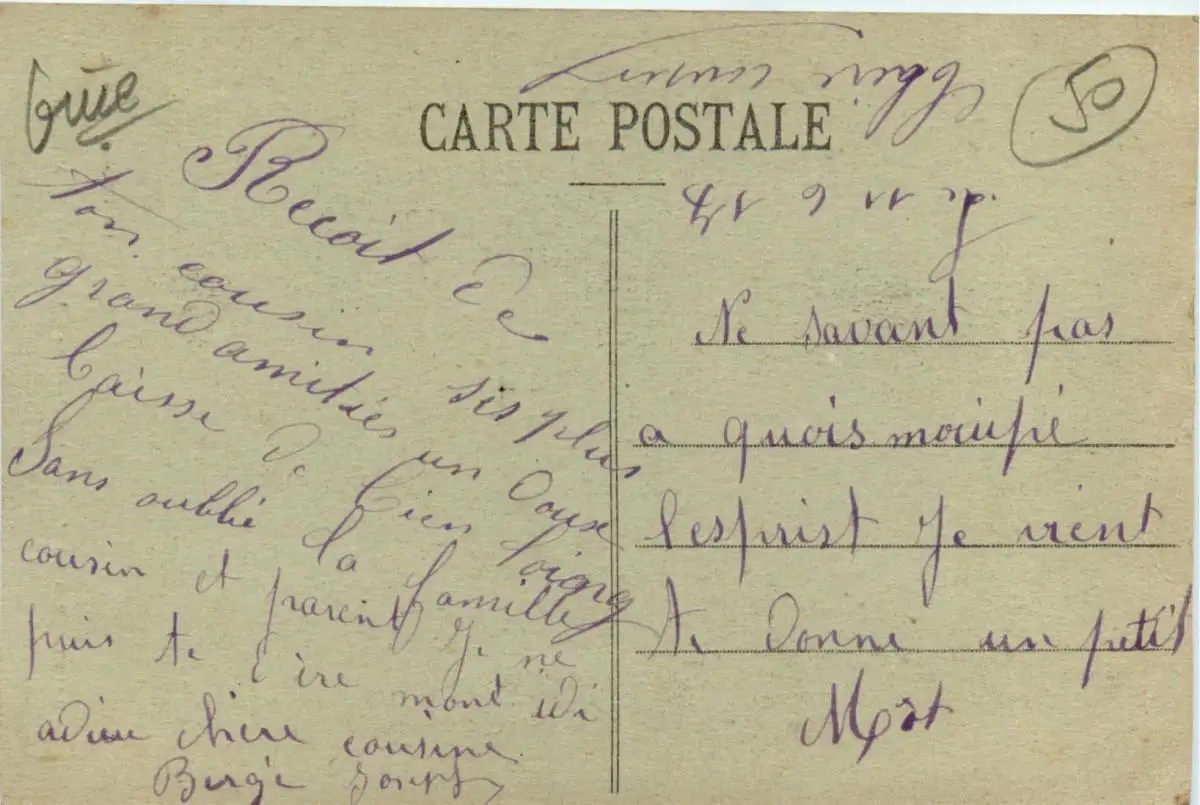 Grüe
50
CARTE POSTALE
Chère cousine
Le 11 6 17
Ne savant pas
a quois mocupé
l'esprist Je vient
te donné un petit
Mot
Recoit de
ton cousin ses plus
grand amitiés un douse
baisse de bien loigne
Sans oublié la famille
cousin et parent Je ne
puis te t'ire mont idi
adieu chère cousine
Bergé Joseph